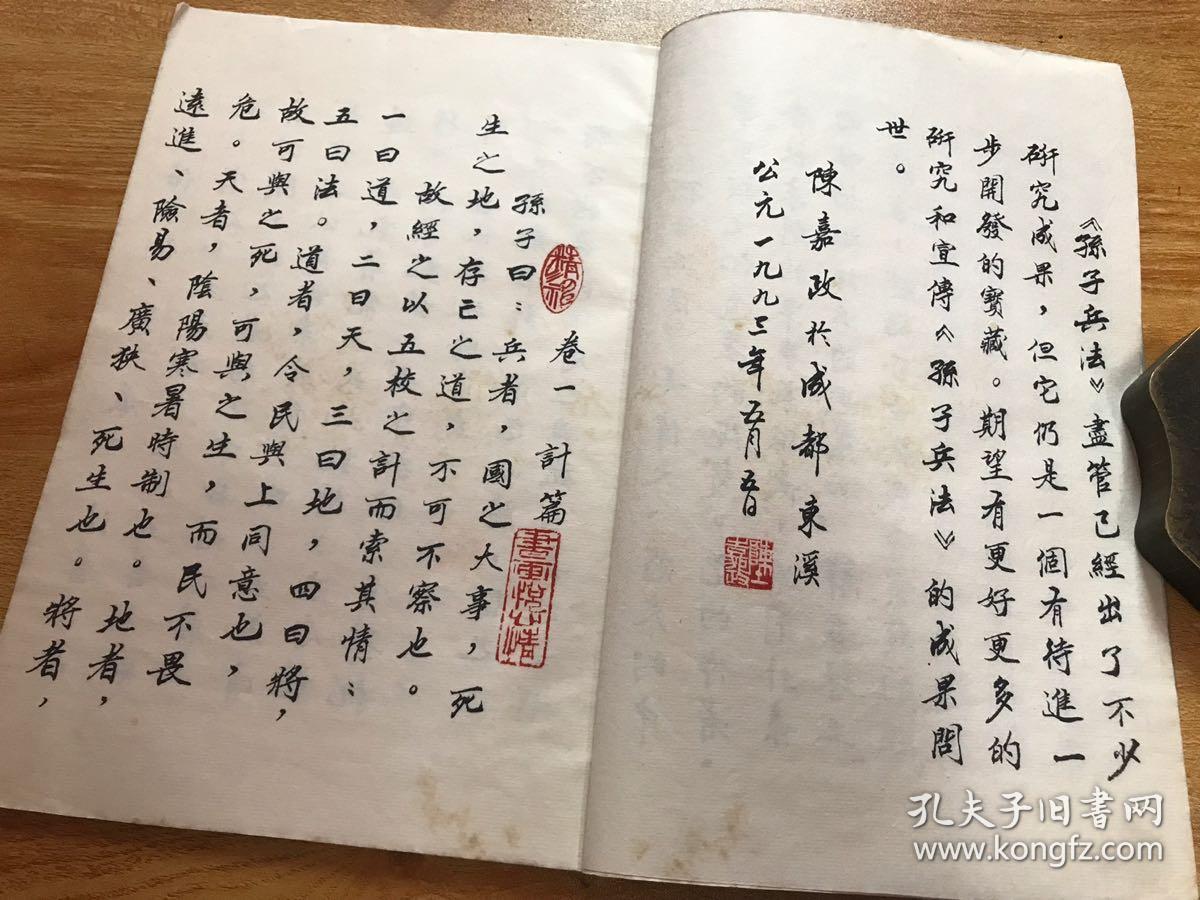 《孫子兵法》盡管已經出了不少
研究成果，但它仍是一個有待進一
步開發的寶藏。期望有更好更多的
研究和宣傳《孫子兵法》的成果問
世。
陳嘉政於成都東溪
公元一九九三年五月五日
陳嘉政
卷一 計篇
孫子曰：兵者，國之大事，死
生之地，存亡之道，不可不察也。
故經之以五校之計而索其情：
一曰道，二曰天，三曰地，四曰將，
五曰法。道者，令民與上同意也，
故可與之死，可與之生，而民不畏
危。天者，陰陽寒暑時制也。地者，
遠進、險易、廣狹、死生也。將者，
孔夫子旧书网
www.kongfz.com